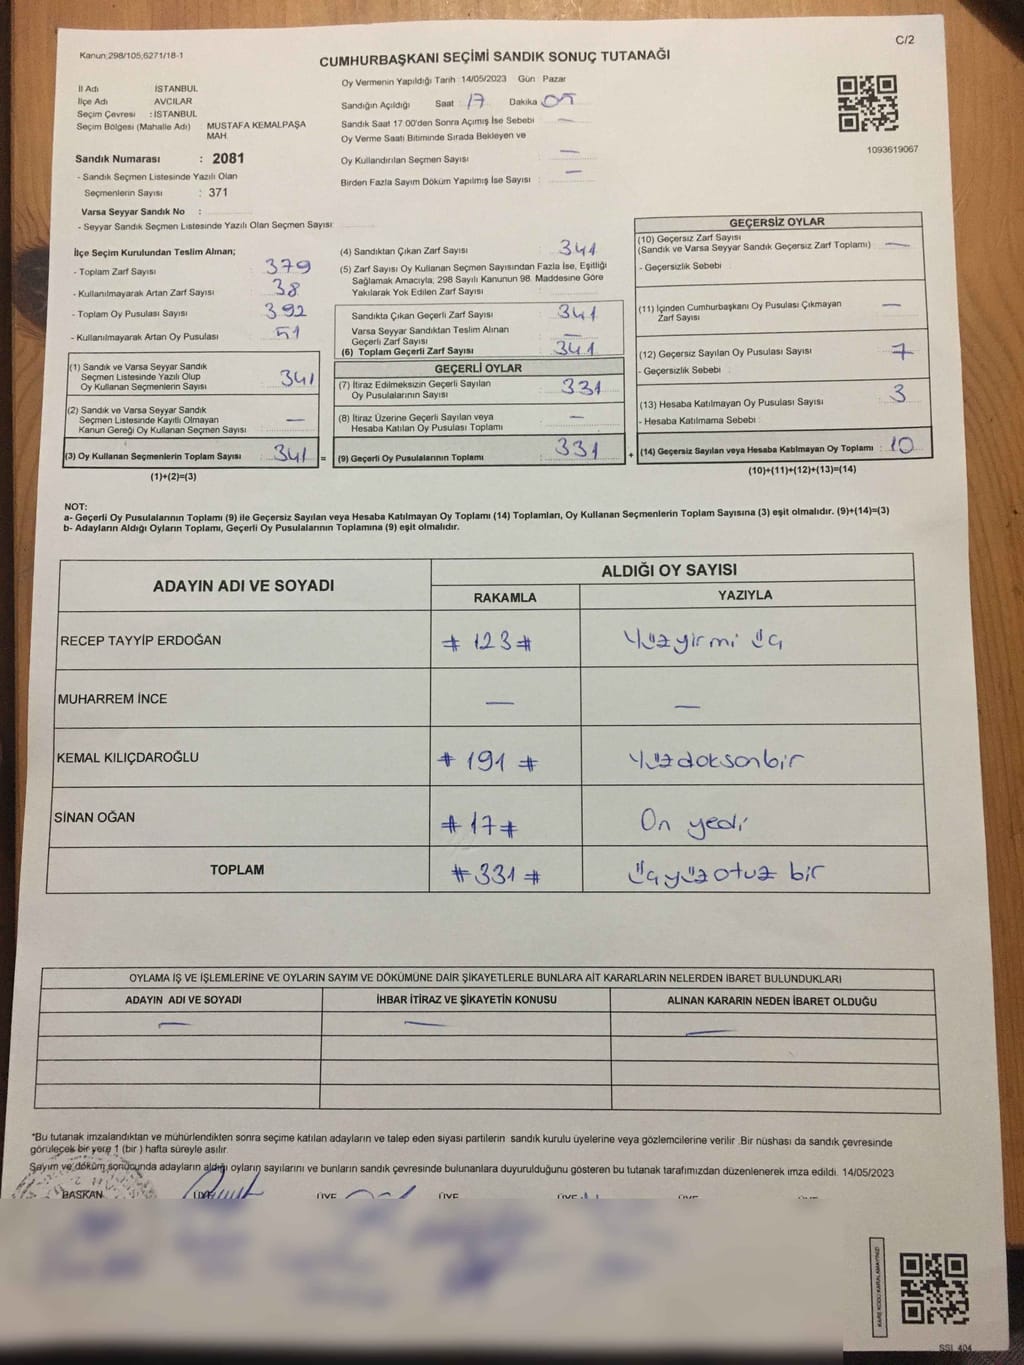 C/2
Kanun 298/105,6271/18-1
CUMHURBAŞKANI SEÇİMİ SANDIK SONUÇ TUTANAĞI
Oy Vermenin Yapıldığı Tarih :14/05/2023 Gün : Pazar
İl Adı İSTANBUL
İlçe Adı AVCILAR
Seçim Çevresi : İSTANBUL
Seçim Bölgesi (Mahalle Adı) MUSTAFA KEMALPAŞA MAH.
Sandığın Açıldığı Saat : 17 Dakika : 05
Sandık Saat 17 00'den Sonra Açımış İse Sebebi —
Oy Verme Saati Bitiminde Sırada Bekleyen ve
Oy Kullandırılan Seçmen Sayısı —
Birden Fazla Sayım Döküm Yapılmış İse Sayısı : —
1093619067
Sandık Numarası : 2081
- Sandık Seçmen Listesinde Yazılı Olan
Seçmenlerin Sayısı : 371
Varsa Seyyar Sandık No :
- Seyyar Sandık Seçmen Listesinde Yazılı Olan Seçmen Sayısı:
İlçe Seçim Kurulundan Teslim Alınan;
- Toplam Zarf Sayısı : 379
- Kullanılmayarak Artan Zarf Sayısı : 38
- Toplam Oy Pusulası Sayısı : 392
- Kullanılmayarak Artan Oy Pusulası : 51
(1) Sandık ve Varsa Seyyar Sandık
Seçmen Listesinde Yazılı Olup
Oy Kullanan Seçmenlerin Sayısı : 341
(2) Sandık ve Varsa Seyyar Sandık
Seçmen Listesinde Kayıtlı Olmayan
Kanun Gereği Oy Kullanan Seçmen Sayısı : —
(3) Oy Kullanan Seçmenlerin Toplam Sayısı : 341 =
(1)+(2)=(3)
(4) Sandıktan Çıkan Zarf Sayısı : 341
(5) Zarf Sayısı Oy Kullanan Seçmen Sayısından Fazla İse, Eşitliği
Sağlamak Amacıyla, 298 Sayılı Kanunun 98. Maddesine Göre
Yakılarak Yok Edilen Zarf Sayısı :
Sandıkta Çıkan Geçerli Zarf Sayısı : 341
Varsa Seyyar Sandıktan Teslim Alınan
Geçerli Zarf Sayısı : —
(6) Toplam Geçerli Zarf Sayısı : 341
GEÇERLİ OYLAR
(7) İtiraz Edilmeksizin Geçerli Sayılan
Oy Pusulalarının Sayısı : 331
(8) İtiraz Üzerine Geçerli Sayılan veya
Hesaba Katılan Oy Pusulası Toplamı : —
(9) Geçerli Oy Pusulalarının Toplamı : 331 +
GEÇERSİZ OYLAR
(10) Geçersiz Zarf Sayısı
(Sandık ve Varsa Seyyar Sandık Geçersiz Zarf Toplamı) : —
- Geçersizlik Sebebi :
(11) İçinden Cumhurbaşkanı Oy Pusulası Çıkmayan
Zarf Sayısı : —
(12) Geçersiz Sayılan Oy Pusulası Sayısı : 7
- Geçersizlik Sebebi :
(13) Hesaba Katılmayan Oy Pusulası Sayısı : 3
- Hesaba Katılmama Sebebi :
(14) Geçersiz Sayılan veya Hesaba Katılmayan Oy Toplamı : 10
(10)+(11)+(12)+(13)=(14)
NOT:
a- Geçerli Oy Pusulalarının Toplamı (9) ile Geçersiz Sayılan veya Hesaba Katılmayan Oy Toplamı (14) Toplamları, Oy Kullanan Seçmenlerin Toplam Sayısına (3) eşit olmalıdır. (9)+(14)=(3)
b- Adayların Aldığı Oyların Toplamı, Geçerli Oy Pusulalarının Toplamına (9) eşit olmalıdır.
ADAYIN ADI VE SOYADI ALDIĞI OY SAYISI
RAKAMLA YAZIYLA
RECEP TAYYİP ERDOĞAN # 123 # Yüzyirmi üç
MUHARREM İNCE — —
KEMAL KILIÇDAROĞLU # 191 # Yüzdoksanbir
SİNAN OĞAN # 17 # On yedi
TOPLAM # 331 # üçyüzotuz bir
OYLAMA İŞ VE İŞLEMLERİNE VE OYLARIN SAYIM VE DÖKÜMÜNE DAİR ŞİKAYETLERLE BUNLARA AİT KARARLARIN NELERDEN İBARET BULUNDUKLARI
ADAYIN ADI VE SOYADI İHBAR İTİRAZ VE ŞİKAYETİN KONUSU ALINAN KARARIN NEDEN İBARET OLDUĞU
— — —
*Bu tutanak imzalandıktan ve mühürlendikten sonra seçime katılan adayların ve talep eden siyasi partilerin sandık kurulu üyelerine veya gözlemcilerine verilir .Bir nüshası da sandık çevresinde
görülecek bir yere 1 (bir ) hafta süreyle asılır.
Sayım ve döküm sonucunda adayların aldığı oyların sayılarını ve bunların sandık çevresinde bulunanlara duyurulduğunu gösteren bu tutanak tarafımızdan düzenlenerek imza edildi. 14/05/2023
BAŞKAN ÜYE ÜYE ÜYE ÜYE ÜYE
KARE KODU KARALAMAYINIZ!
SSI_404